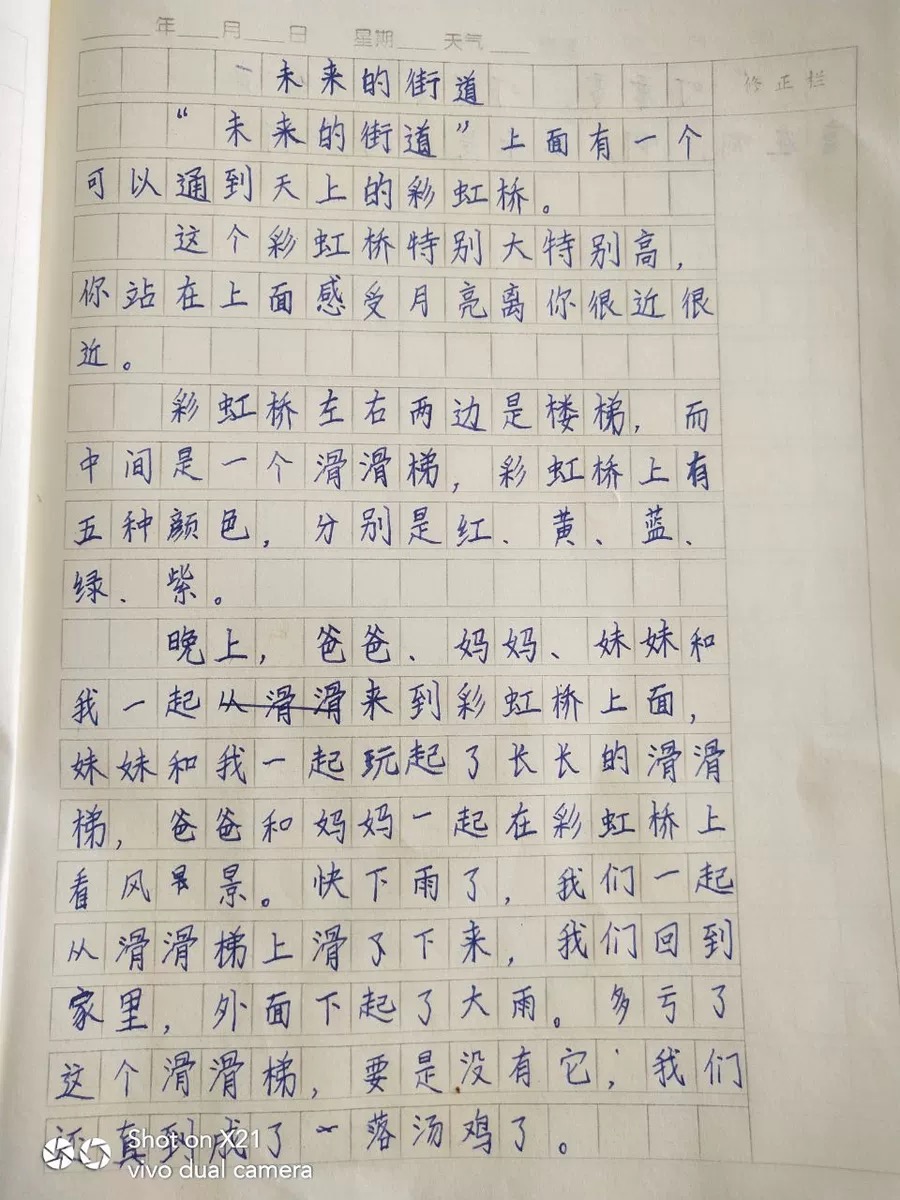 年 月 日 星期 天气
一未来的街道
修正栏
“未来的街道”上面有一个
可以通到天上的彩虹桥。
这个彩虹桥特别大特别高，
你站在上面感受月亮离你很近很
近。
彩虹桥左右两边是楼梯，而
中间是一个滑滑梯，彩虹桥上有
五种颜色，分别是红、黄、蓝、
绿、紫。
晚上，爸爸、妈妈、妹妹和
我一起从滑滑来到彩虹桥上面，
妹妹和我一起玩起了长长的滑滑
梯，爸爸和妈妈一起在彩虹桥上
看风景。快下雨了，我们一起
从滑滑梯上滑了下来，我们回到
家里，外面下起了大雨。多亏了
这个滑滑梯，要是没有它，我们
还真到成了一落汤鸡了。
Shot on X21
vivo dual camera